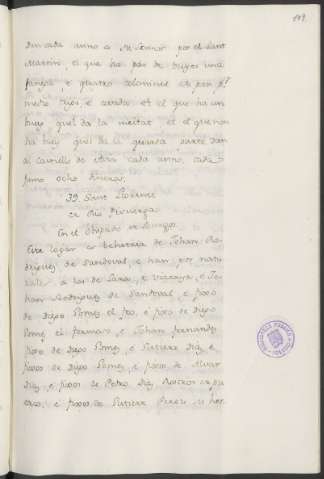 den cada anno al Sennor por el Sant
Martin, el que ha par de bueyes una
fanega, e quatro celemines de pan por
medio trigo, e cevada et el que ha un
buey quel da la meitat et el que non
ha buey quel da la quarta parte dan
al castiello de cada anno, cada
fumo ocho dineros.
39. Sant Llorente
de Rio Pisuerga.
En el Obispado de Burgos.
Este logar es behetria de Johan Ro-
driguez de Sandoval, e han por natu-
rales a los de Lara, e Vizcaya, e Jo-
han Rodriguez de Sandoval, e fijos
de Diego Gomez el fijo, e fijos de Diego
Gomez el e Johan Fernandez
fijos de Diego Gomez, e Gutierre Diaz, e
fijos de Diego Gomez, e fijos de Alvar
Diaz, e fijos de Pedro Diaz
e fijos de Gutierre